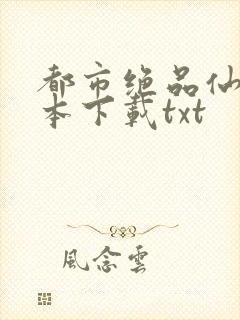 都市绝品仙
本下载txt
風念雲